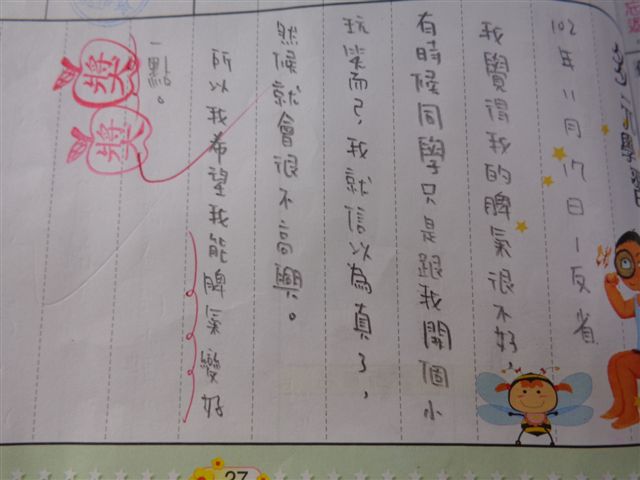 102年11月17日-反省
我覺得我的脾氣很不好，
有時候同學只是跟我開個小
玩笑而已，我就信以為真了，
然候就會很不高興。
所以我希望我能脾氣變好
一點。
獎
獎
27